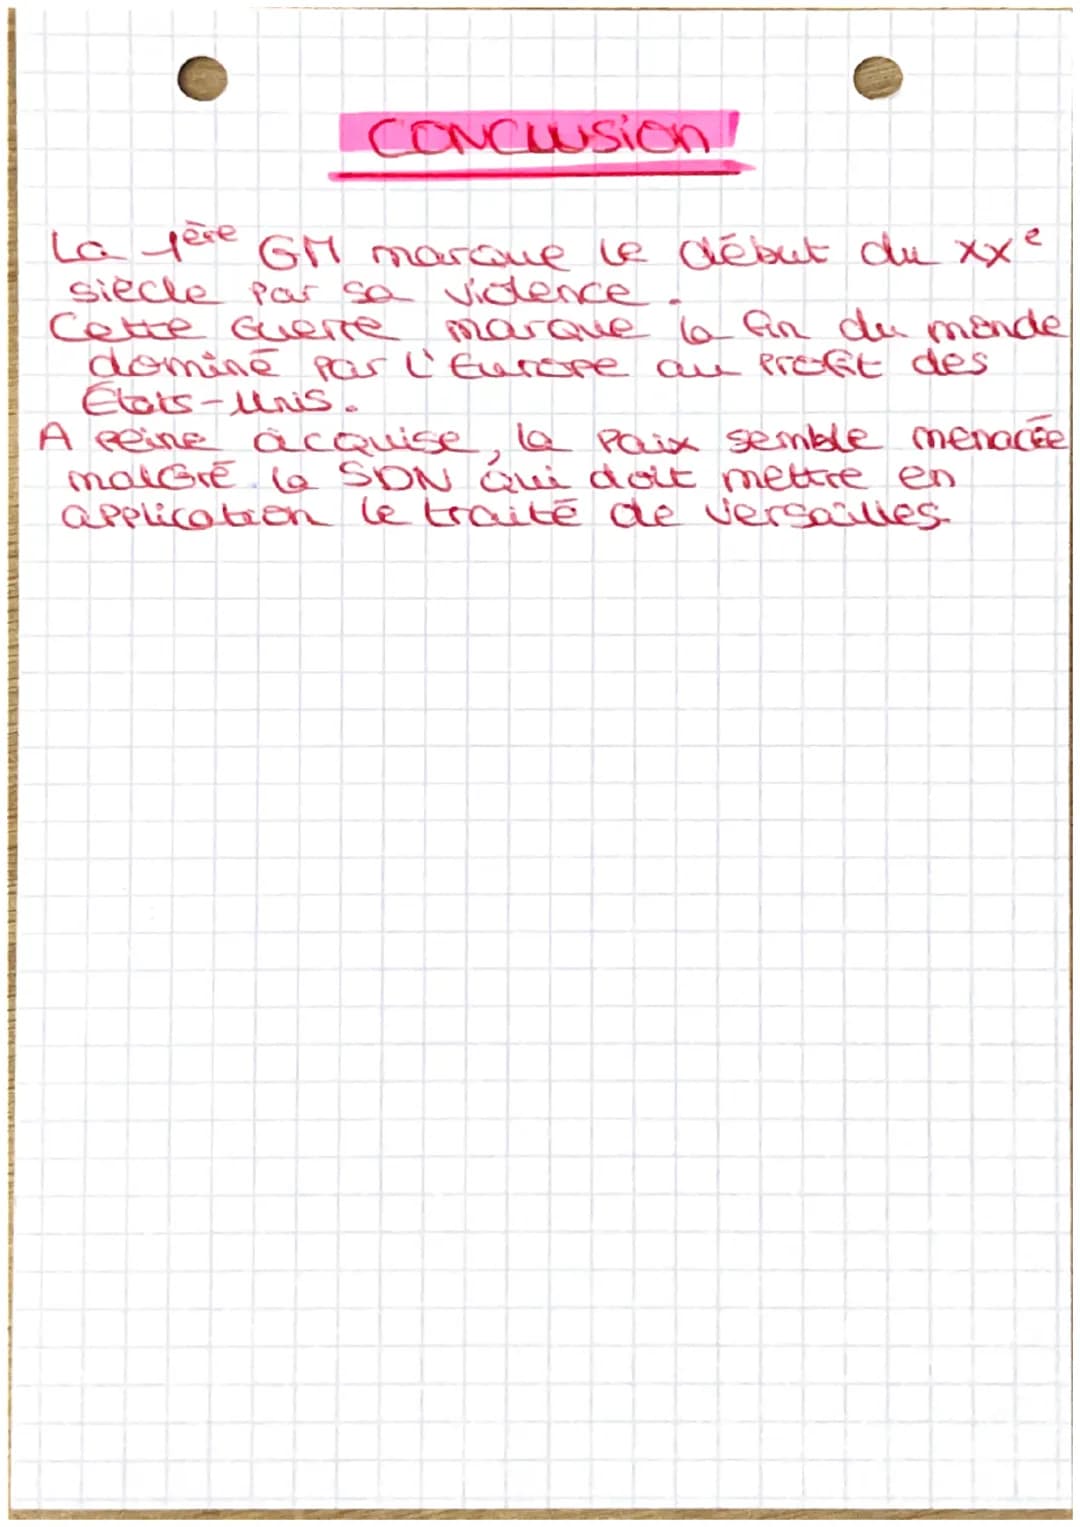 CONCLUSION
La 1ère GM marque le début du XXe
siècle par sa violence.
Cette Guerre marque la fin du monde
dominé par l'Europe au profit des
États-Unis.
A peine acquise, la paix semble menacée
malgré la SDN qui doit mettre en
application le traité de Versailles.